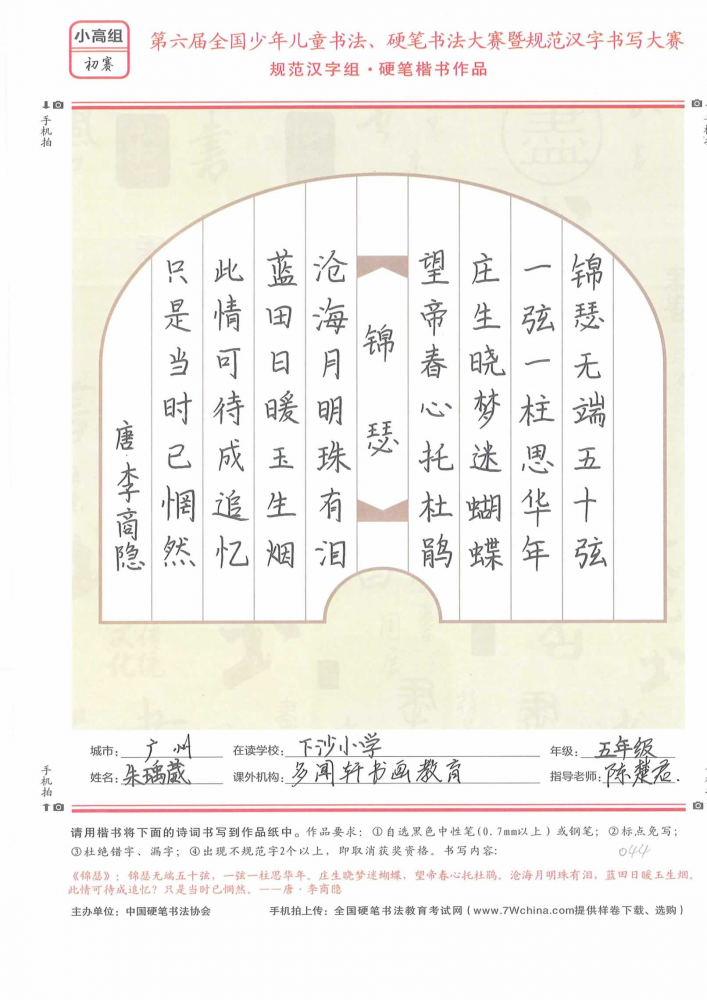 小高组
初赛
第六届全国少年儿童书法、硬笔书法大赛暨规范汉字书写大赛
规范汉字组·硬笔楷书作品
手机拍
锦瑟无端五十弦
一弦一柱思华年
庄生晓梦迷蝴蝶
望帝春心托杜鹃
锦瑟
沧海月明珠有泪
蓝田日暖玉生烟
此情可待成追忆
只是当时已惘然
唐·李商隐
城市：广州 在读学校：下沙小学 年级：五年级
姓名：朱瑀葳 课外机构：多闻轩书画教育 指导老师：陈楚君.
手机拍
请用楷书将下面的诗词书写到作品纸中。作品要求：①自选黑色中性笔(0.7mm以上)或钢笔；②标点免写；
③杜绝错字、漏字；④出现不规范字2个以上，即取消获奖资格。书写内容：
044
《锦瑟》：锦瑟无端五十弦，一弦一柱思华年。庄生晓梦迷蝴蝶，望帝春心托杜鹃。沧海月明珠有泪，蓝田日暖玉生烟。
此情可待成追忆？只是当时已惘然。——唐·李商隐
主办单位：中国硬笔书法协会 手机拍上传：全国硬笔书法教育考试网（www.7Wchina.com提供样卷下载、选购）